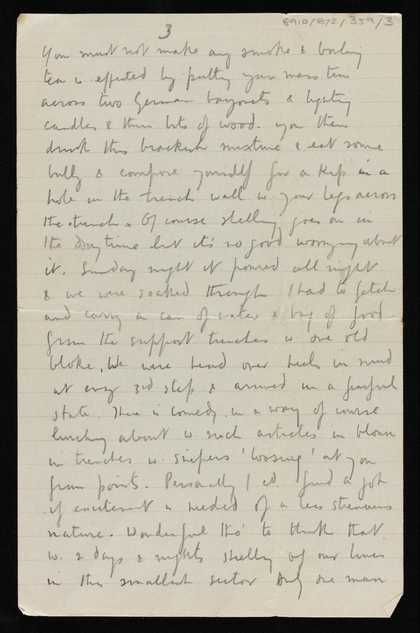 8910/8/2/359/3
3
You must not make any smoke & boiling
tea is effected by putting your mess tin
across two German bayonets & lighting
candles & thin bits of wood. you then
drink this brackish mixture & eat some
bully & compose yourself for a kip in a
hole in the trench wall w your legs across
the trench. Of course shelling goes on in
the day time but it's no good worrying about
it. Sunday night it poured all night
& we were soaked through I had to fetch
and carry a can of water & bag of food
from the support trenches w one old
bloke. We were head over heels in mud
at every 3rd step & arrived in a fearful
state. There is comedy in a way of course
lurching about w such articles in
in trenches w snipers 'loosing' at you
from points. Personally I cd. find a job
if excitement is needed of a less strenuous
nature. Wonderful tho' to think that
w. 2 days & nights shelling of our lines
in this smallish sector only one man